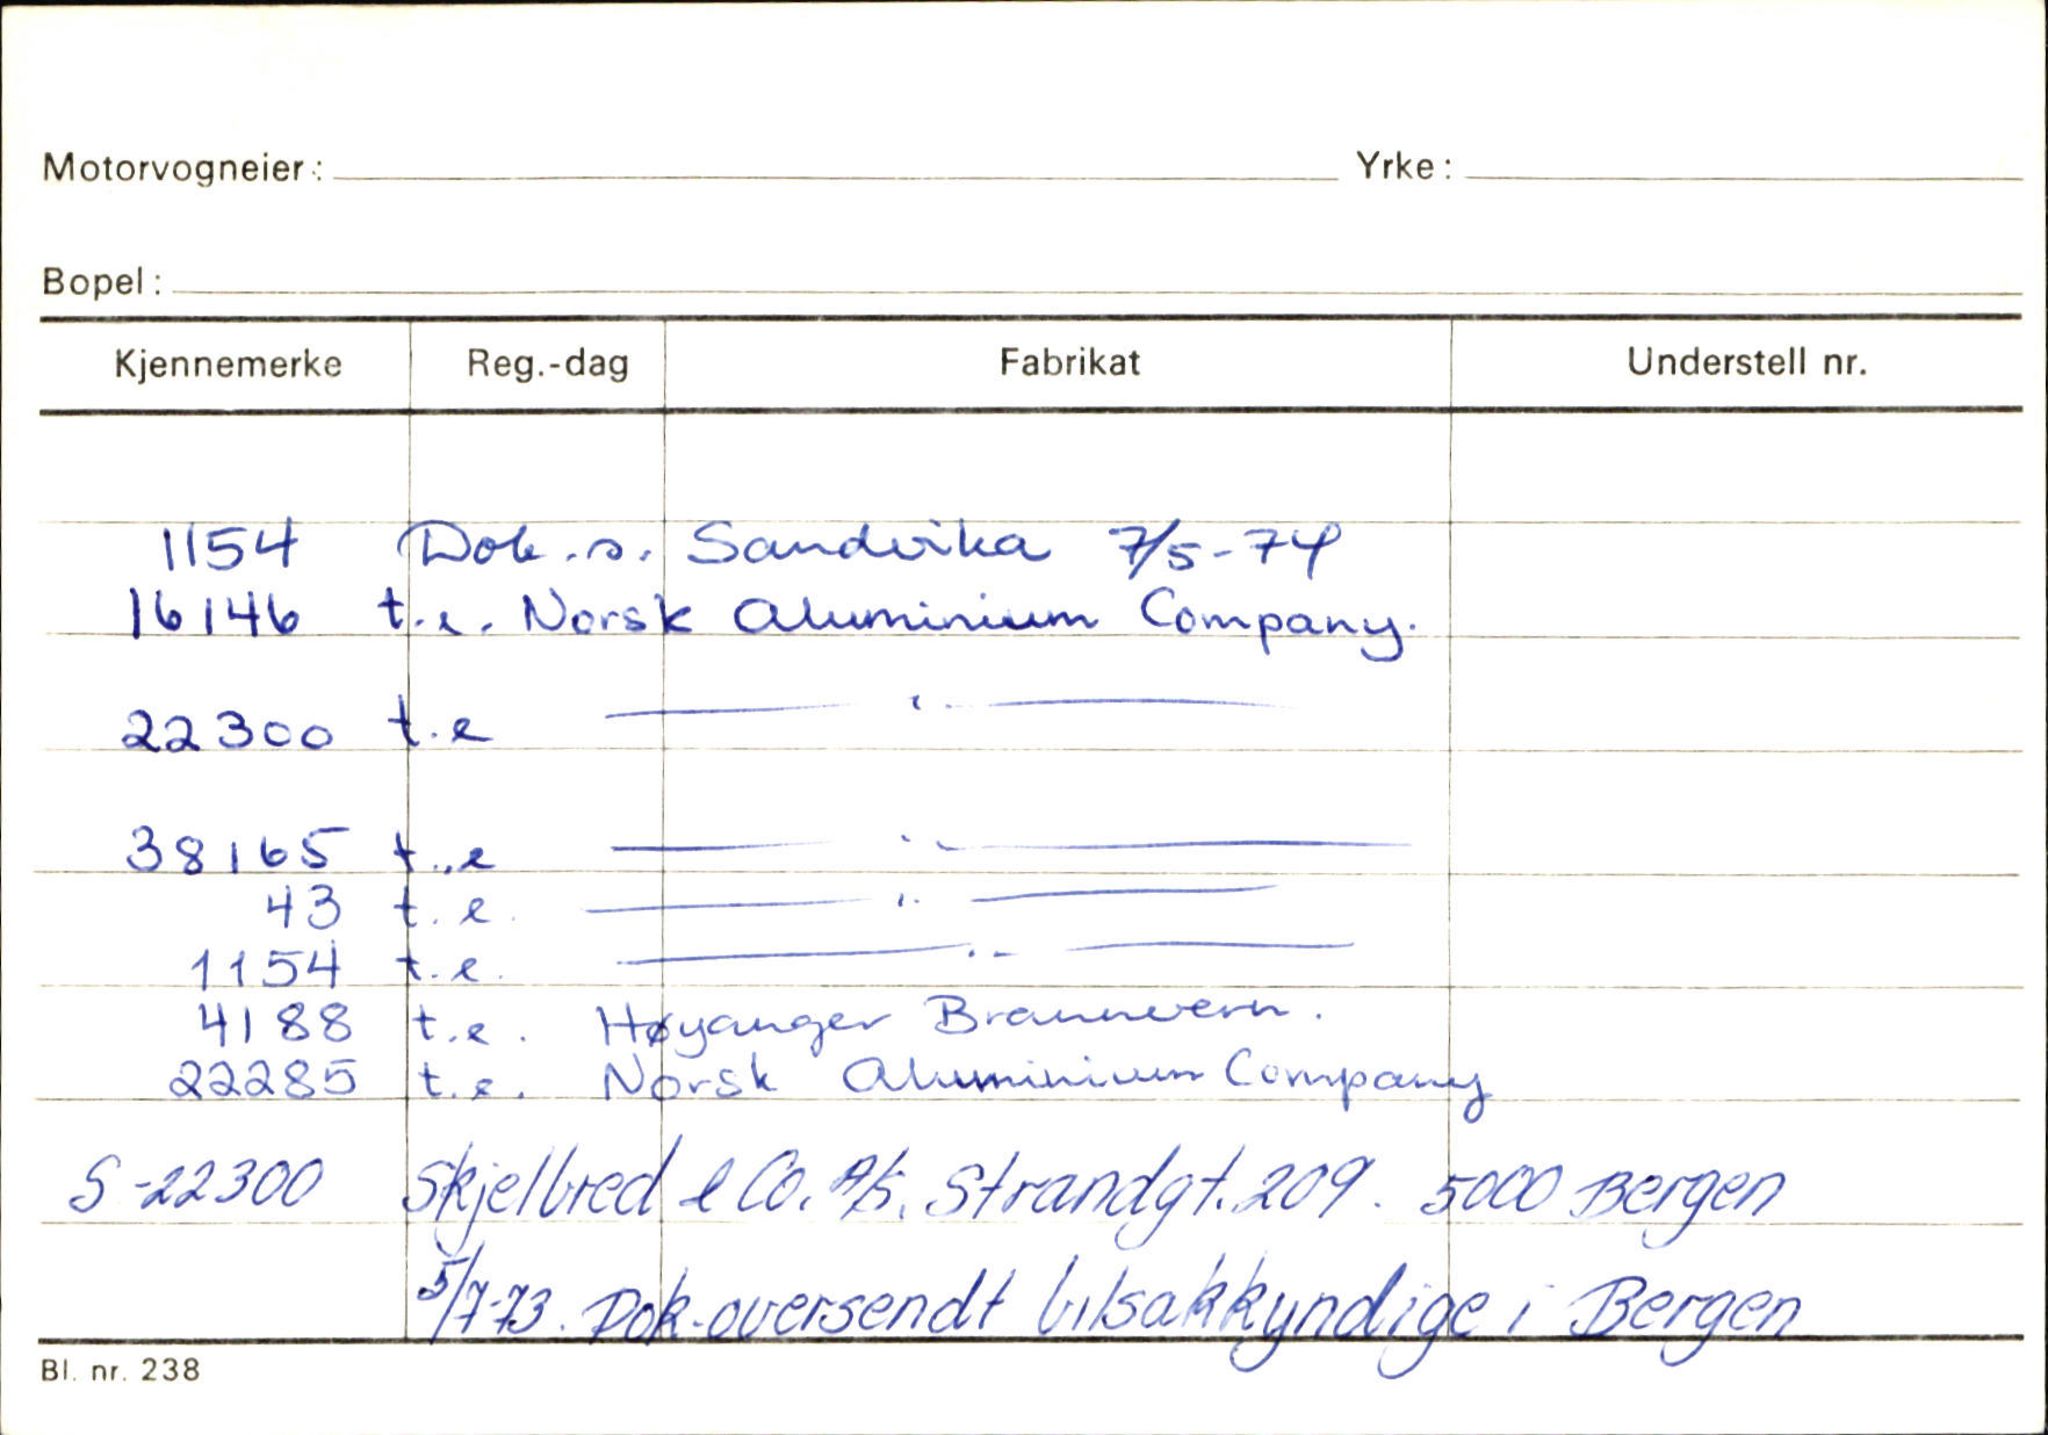 Motorvogneier: Yrke:
Bopel:
Kjennemerke Reg.-dag Fabrikat Understell nr.
1154 Dok. s. Sandvika 7/5-74
16146 t.e. Norsk Aluminium Company.
22300 t.e —— " ——
38165 t.e —— " ——
43 t.e. —— " ——
1154 t.e. —— " ——
4188 t.e. Høyanger Brannvern.
22285 t.e. Norsk Aluminium Company
S-22300 Skjelbred & Co. A/S. Strandgt. 209. 5000 Bergen
5/7-73. Dok. oversendt bilsakkyndige i Bergen
Bl. nr. 238